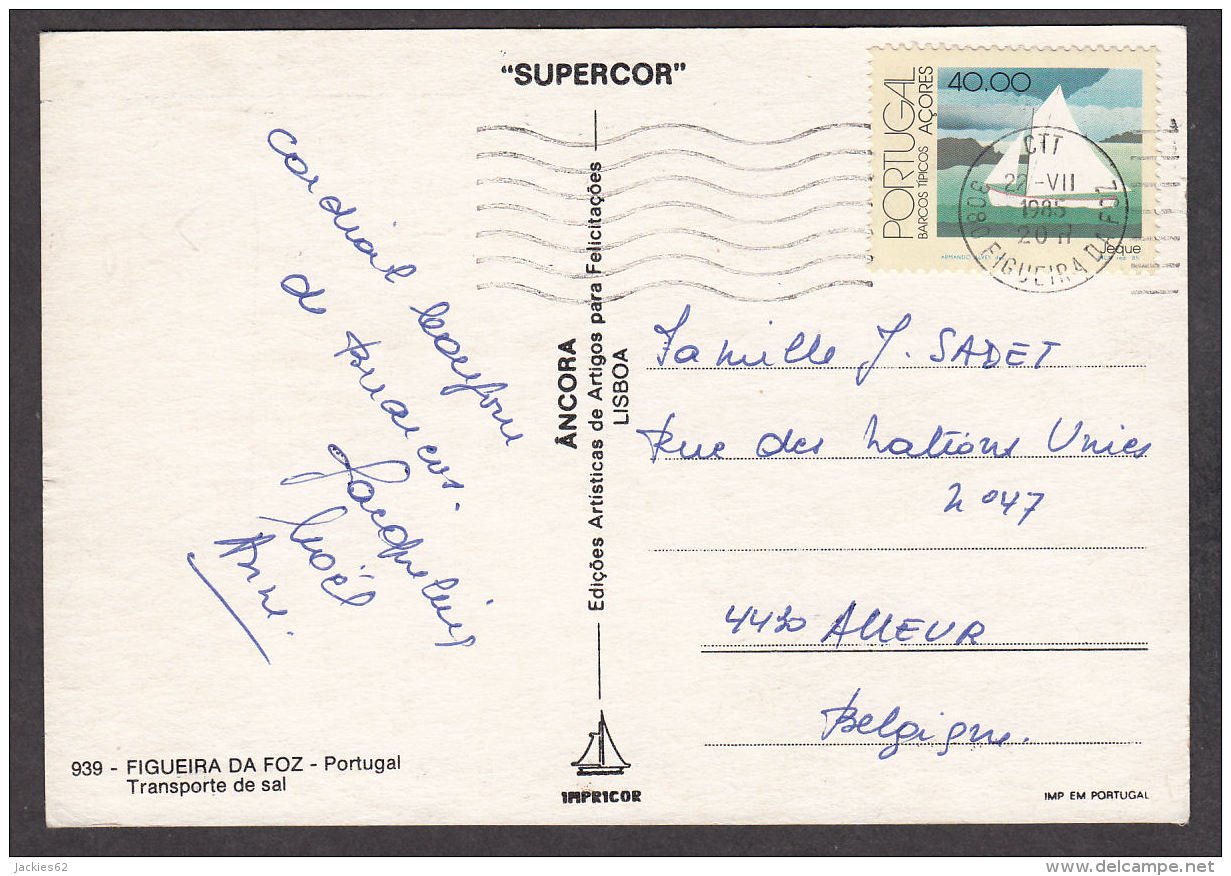 "SUPERCOR"
PORTUGAL
BARCOS TÍPICOS AÇORES
40.00
Jeque
ARMANDO ALVES
CTT
22-VII
1985
20 H
3080 FIGUEIRA DA FOZ
cordial bonjour
de Buarcos.
Jacqueline
Noël
Anne.
ÂNCORA
Edições Artísticas de Artigos para Felicitações
LISBOA
Famille J. SADET
Rue des Nations Unies
N°47
4430 ALLEUR
Belgique.
939 - FIGUEIRA DA FOZ - Portugal
Transporte de sal
IMPRICOR
IMP EM PORTUGAL
jackies62
www.delcampe.net